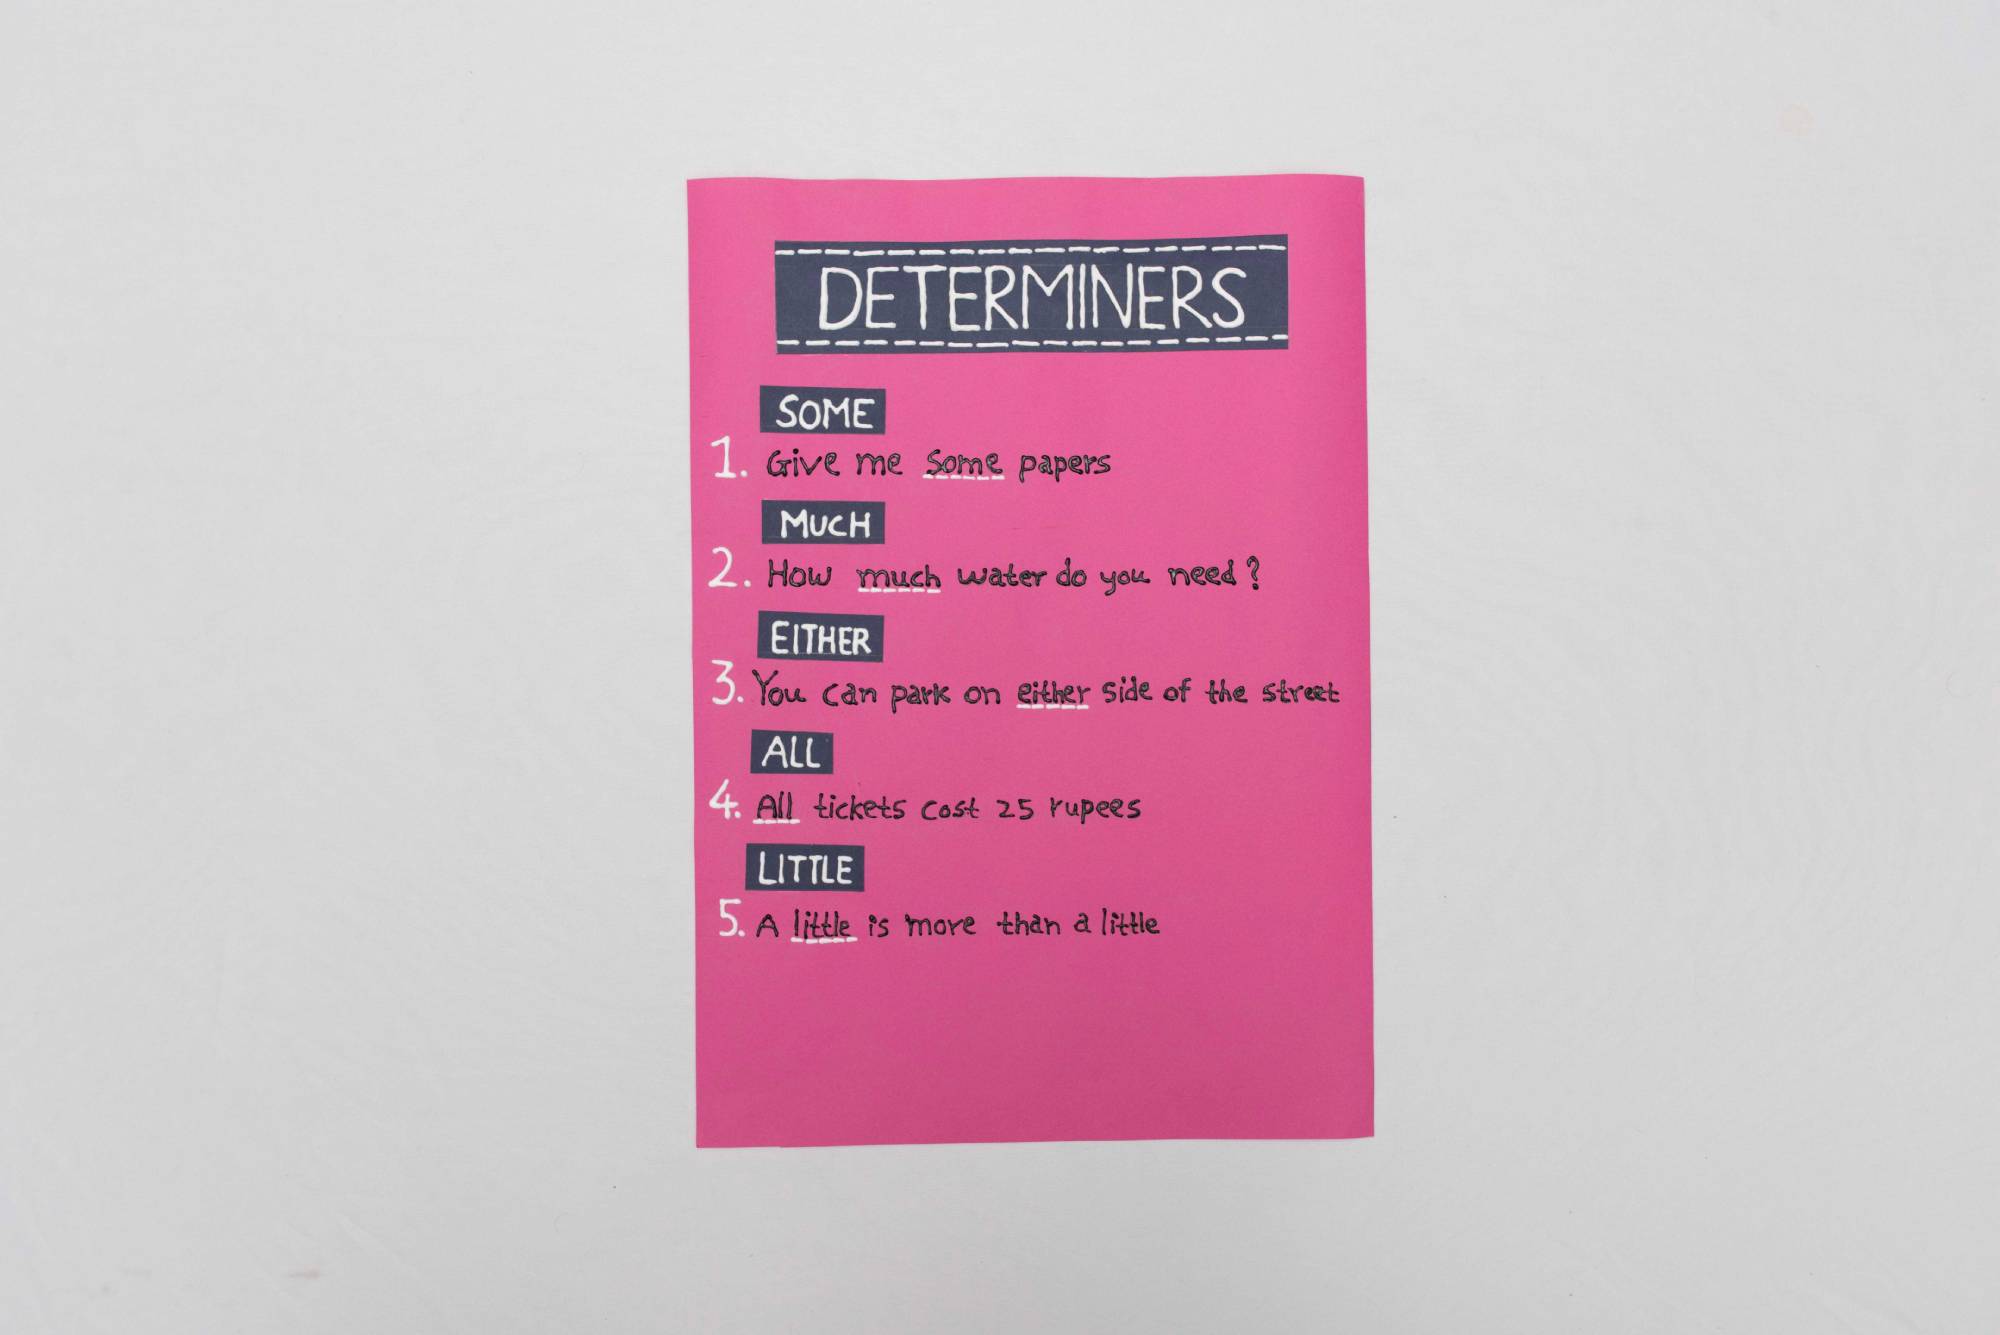 DETERMINERS
SOME
1. Give me some papers
MUCH
2. How much water do you need?
EITHER
3. You can park on either side of the street
ALL
4. All tickets cost 25 rupees
LITTLE
5. A little is more than a little